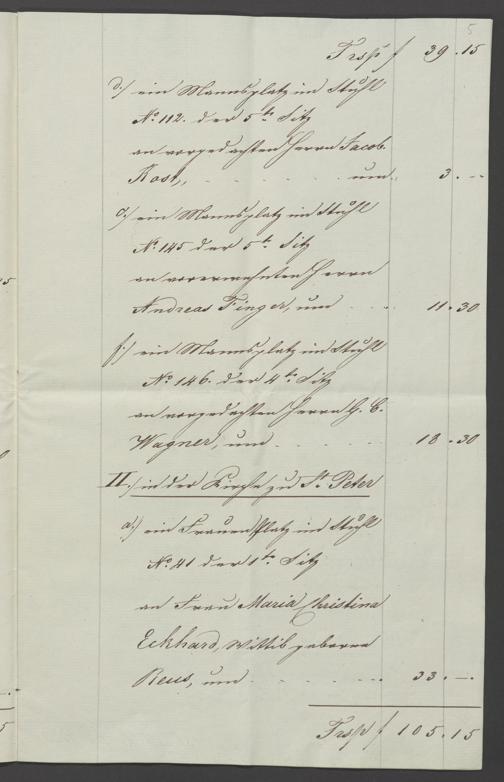 5
Trsp f 39.15
d.) ein Mannsplatz im Stuhl
No. 112. der 5te Sitz
an vorgedachten Herrn Jacob
Rost, um 3.-
e.) ein Mannsplatz im Stuhl
No. 145 der 5te Sitz
an vorerwehnten Herrn
Andreas Finger, um 11.30
f.) ein Mannsplatz im Stuhl
No. 146. der 4te Sitz
an vorgedachten Herrn G. C.
Wagner, um 18.30
II.) in der Kirche zu St. Peter
a.) ein Frauenplatz im Stuhl
No. 41 der 1te Sitz
an Frau Maria Christina
Eckhard, Wittib geborne
Reus, um 33.-
Trsp f 105.15